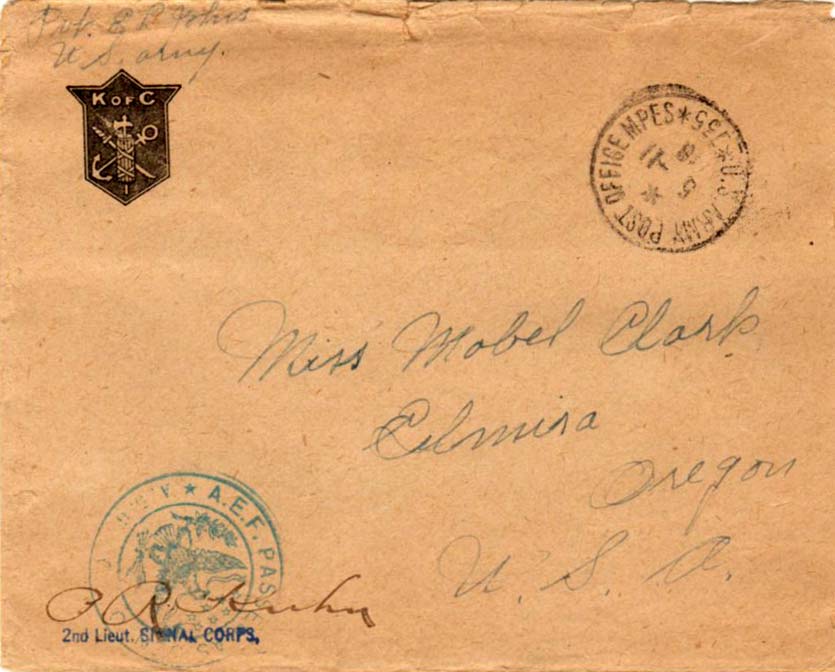 Pvt. E R Johns
U.S. army.
K OF C
U.S. ARMY POST OFFICE MPES * 735 *
Miss Mabel Clark
Elmira
Oregon
U. S. A.
A.E.F. PASSED
2nd Lieut. SIGNAL CORPS,